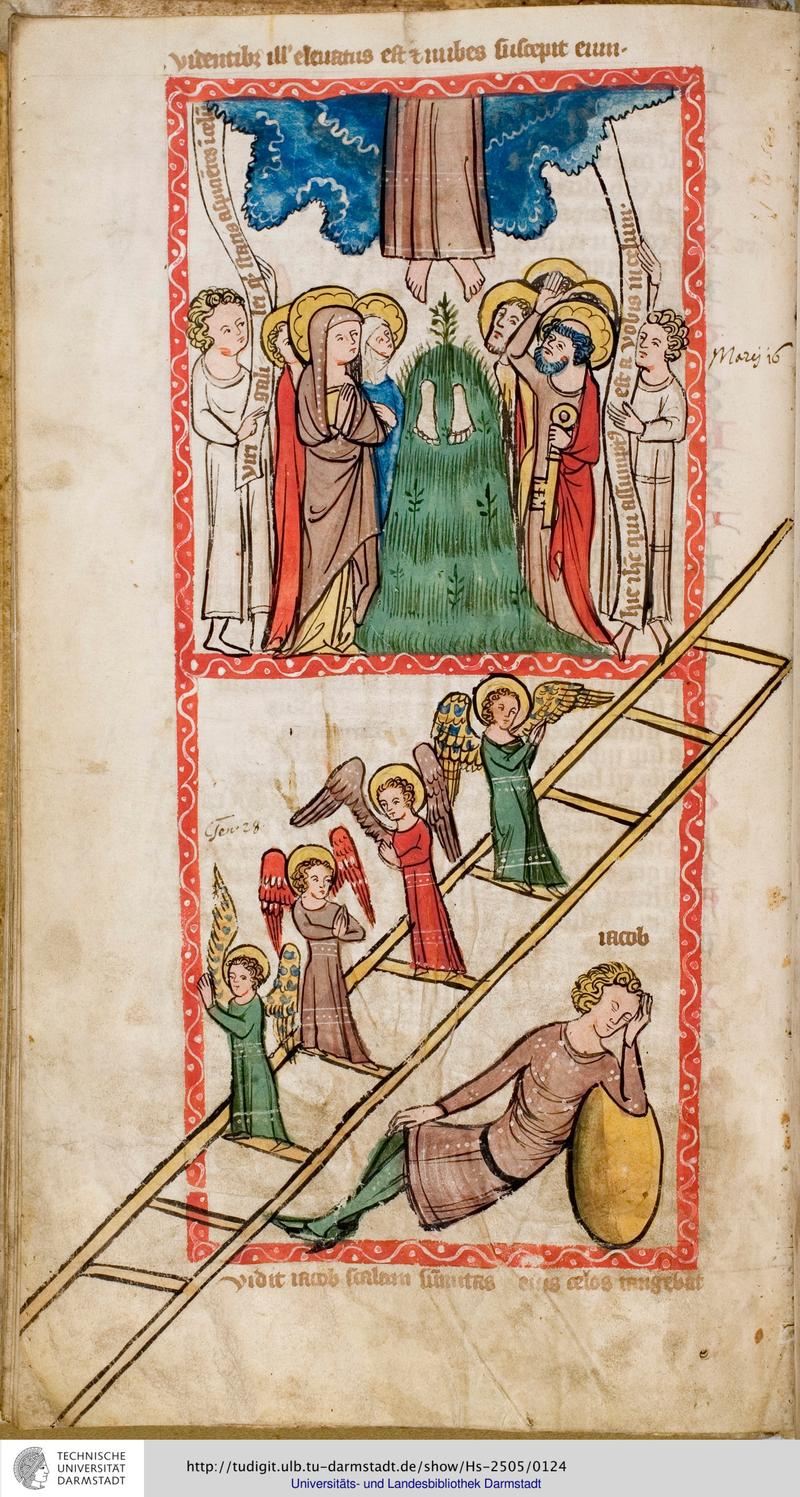 videntibꝫ ill' eleuatus est ⁊ nubes suscepit eum·
viri gali
aspicietes i celũ
hic ihc qui assumptꝰ est a vobis in celum·
Marcj 16
Gen· 28
iacob
vidit iacob scalam sũmitas eius celos tangebat
TECHNISCHE
UNIVERSITÄT
DARMSTADT
http://tudigit.ulb.tu-darmstadt.de/show/Hs-2505/0124
Universitäts- und Landesbibliothek Darmstadt